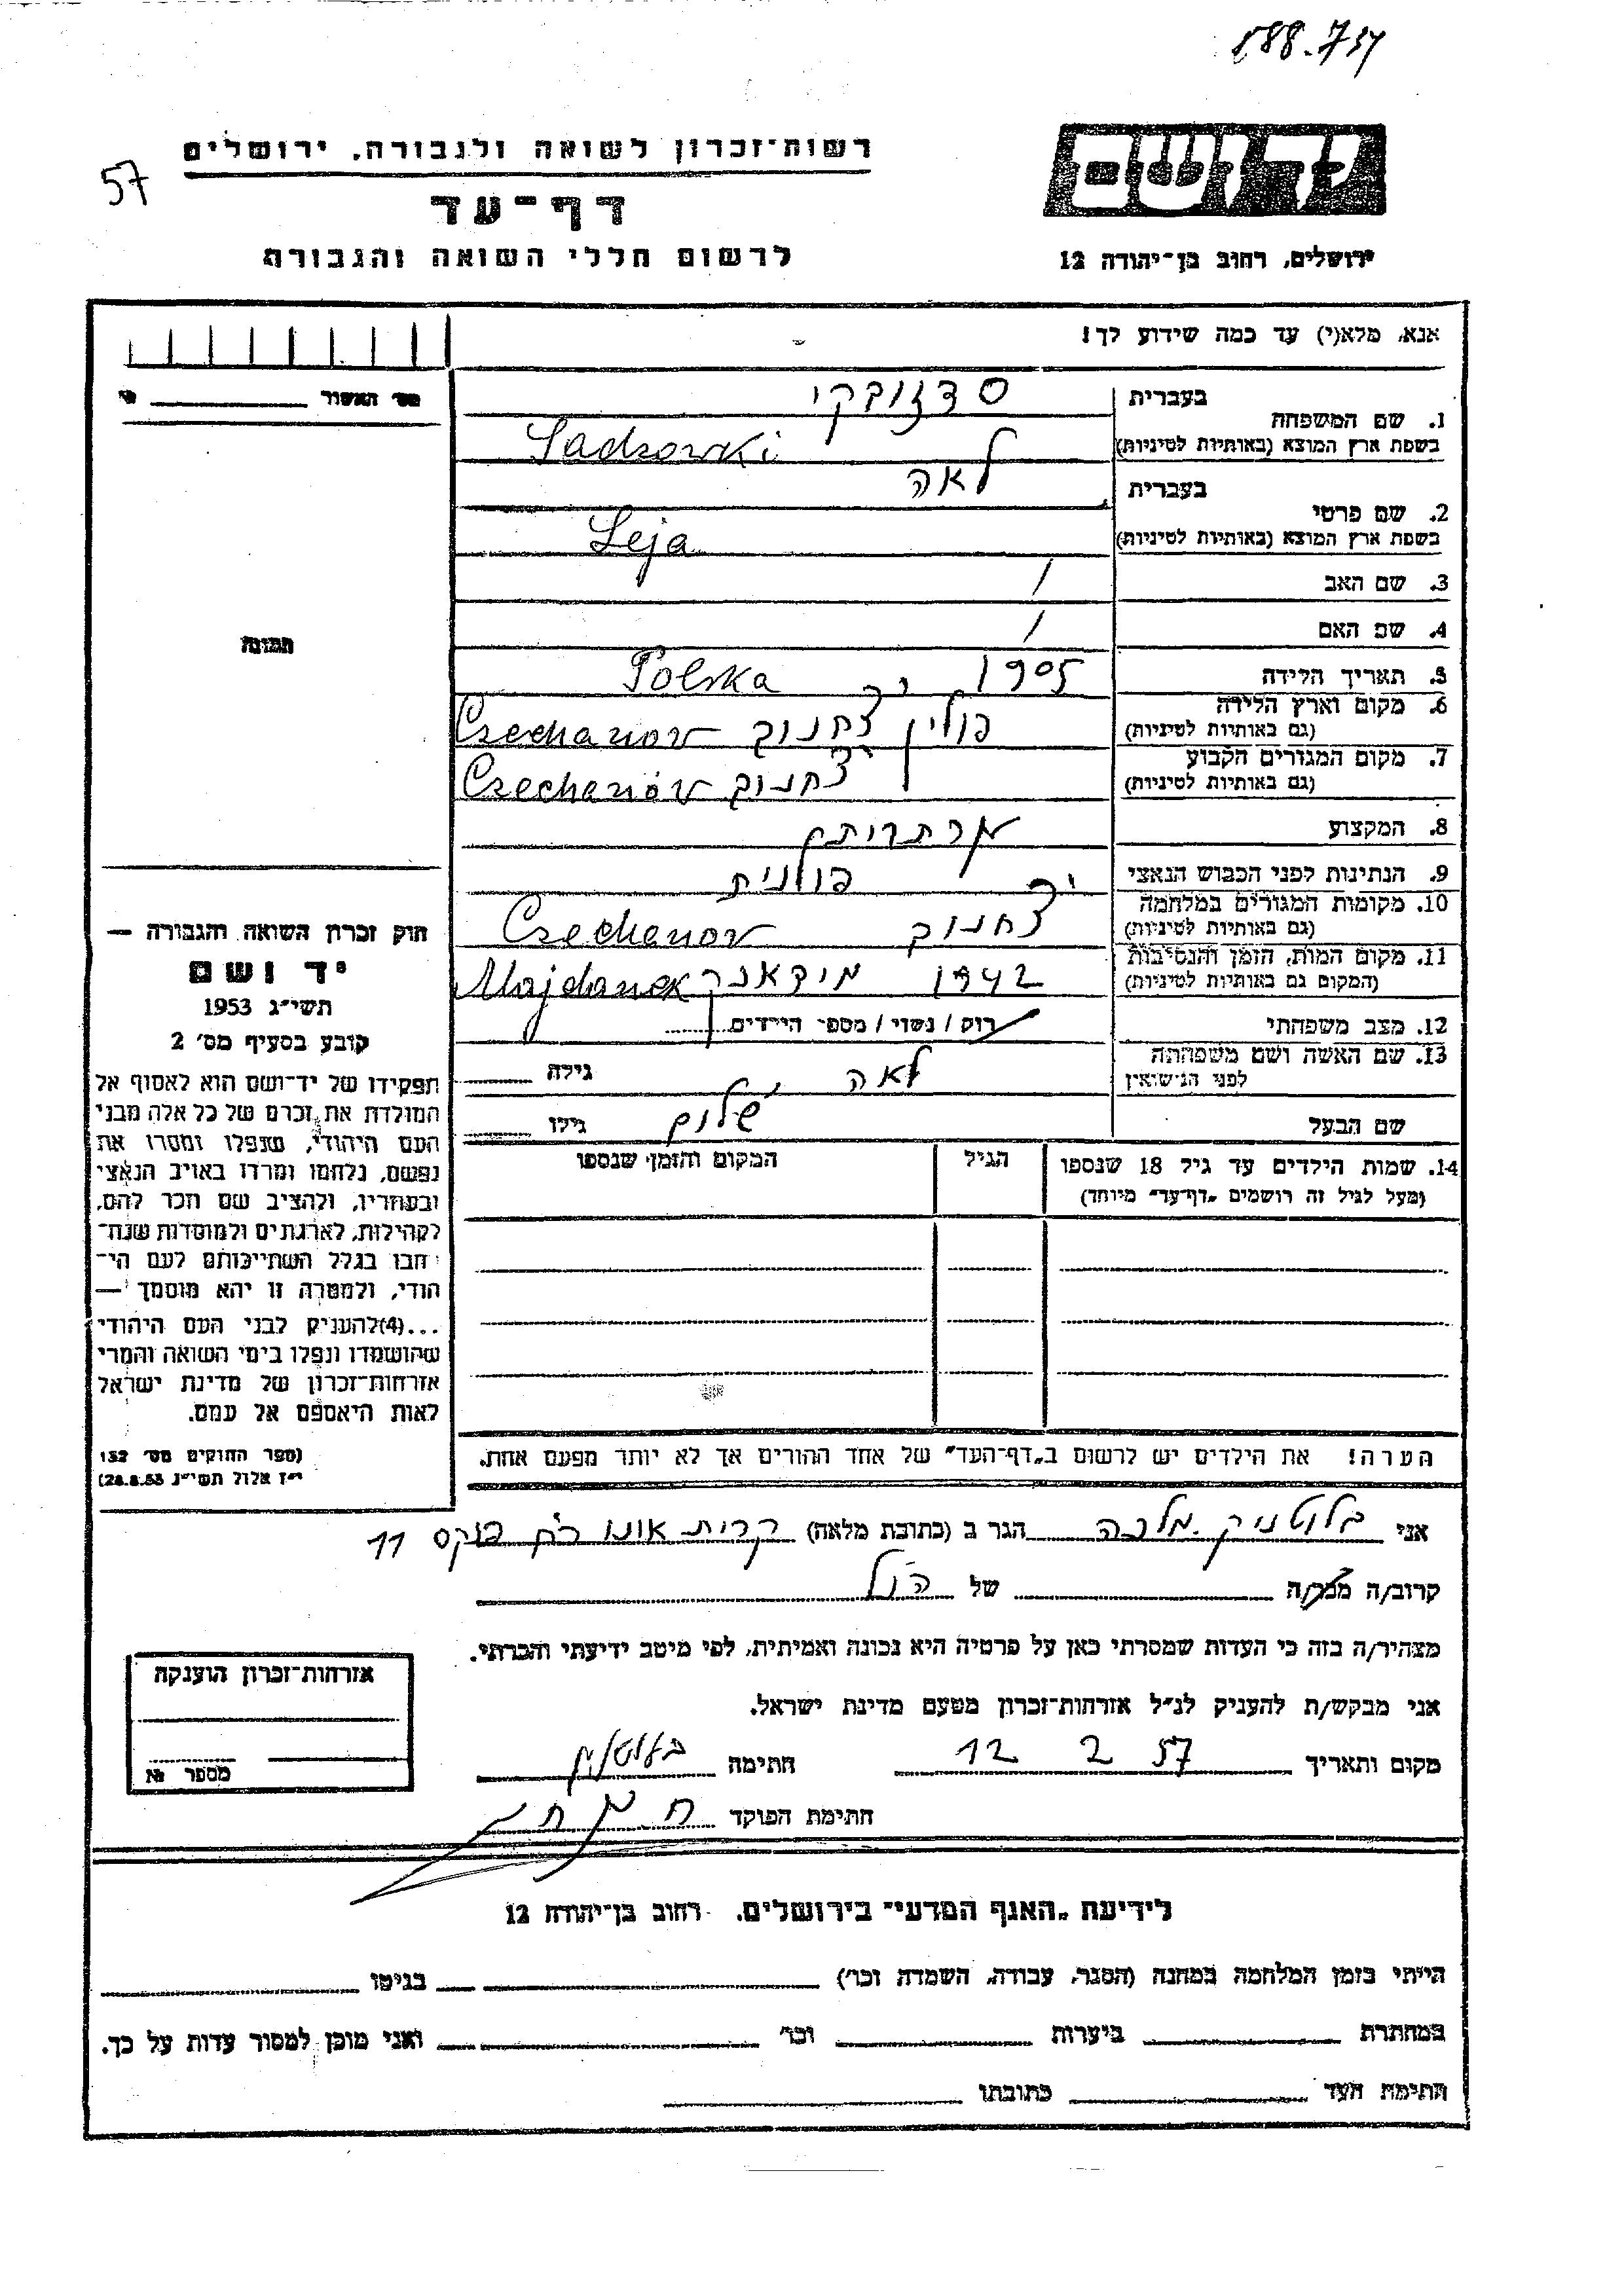 888.737
57
רשות־זכרון לשואה ולגבורה, ירושלים
דף־עד
לרשום חללי השואה והגבורה
יד ושם
ירושלים, רחוב בן־יהודה 12
אנא, מלא(י) עד כמה שידוע לך!
מס׳ האשור
1. שם המשפחה בעברית סדזובקי
בשפת ארץ המוצא (באותיות לטיניות) Sadzowki
2. שם פרטי בעברית לאה
בשפת ארץ המוצא (באותיות לטיניות) Leja
3. שם האב /
4. שם האם /
5. תאריך הלידה 1905 Polska
6. מקום וארץ הלידה (גם באותיות לטיניות) פולין צחנוב Czechanov
7. מקום המגורים הקבוע (גם באותיות לטיניות) צחנוב Czechanów
8. המקצוע
9. הנתינות לפני הכבוש הנאצי פולנית
10. מקומות המגורים במלחמה (גם באותיות לטיניות) צחנוב Czechanov
11. מקום המות, הזמן והנסיבות (המקום גם באותיות לטיניות) 1942 מידאנק Majdanek
12. מצב משפחתי רוק / נשוי / מספר הילדים
13. שם האשה ושם משפחתה לפני הנישואין לאה גילה
שם הבעל שלום גילו
14. שמות הילדים עד גיל 18 שנספו הגיל המקום והזמן שנספו
(מעל לגיל זה רושמים „דף־עד״ מיוחד)
תמונה
חוק זכרון השואה והגבורה —
יד ושם
תשי״ג 1953
קובע בסעיף מס׳ 2
תפקידו של יד־ושם הוא לאסוף אל
המולדת את זכרם של כל אלה מבני
העם היהודי, שנפלו ומסרו את
נפשם, נלחמו ומרדו באויב הנאצי
ובעוזריו, ולהציב שם וזכר להם,
לקהילות, לארגונים ולמוסדות שנח־
רבו בגלל השתייכותם לעם הי־
הודי, ולמטרה זו יהא מוסמך —
...(4)להעניק לבני העם היהודי
שהושמדו ונפלו בימי השואה והמרי
אזרחות־זכרון של מדינת ישראל
לאות היאספם אל עמם.
(ספר החוקים מס׳ 132
י״ז אלול תשי״ג 28.8.53)
הערה! את הילדים יש לרשום ב„דף־העד״ של אחד ההורים אך לא יותר מפעם אחת.
אני בלוטניק מלכה הגר ב (כתובת מלאה) קרית אונו בוקס 11
קרוב/ה מכר/ה של הנ״ל
מצהיר/ה בזה כי העדות שמסרתי כאן על פרטיה היא נכונה ואמיתית, לפי מיטב ידיעתי והכרתי.
אני מבקש/ת להעניק לנ״ל אזרחות־זכרון מטעם מדינת ישראל.
מקום ותאריך 12 2 57 חתימה בלוטניק
חתימת הפוקד
אזרחות־זכרון הוענקה
מספר №
לידיעת „האגף המדעי״ בירושלים, רחוב בן־יהודה 12
הייתי בזמן המלחמה במחנה (הסגר, עבודה, השמדה וכו׳) בגיטו
במחתרת ביערות וכו׳ ואני מוכן למסור עדות על כך.
חתימת העד כתובתו